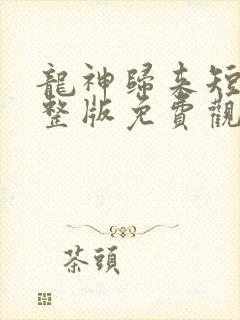 龍神歸來短
整版免費觀
茶頭